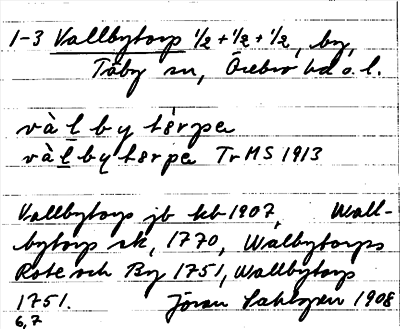 1-3 Vallbytorp ½ + ½ + ½, by,
Täby sn, Örebro hd o. l.
vàlbytårpa
vàlbytårpa Tr MS 1913
Vallbytorp jb kb 1907, Wall-
bytorp sk, 1770, Wälbytorps
Rote och By 1751, Wallbytorp
1751. Jöran Sahlgren 1908
6,7